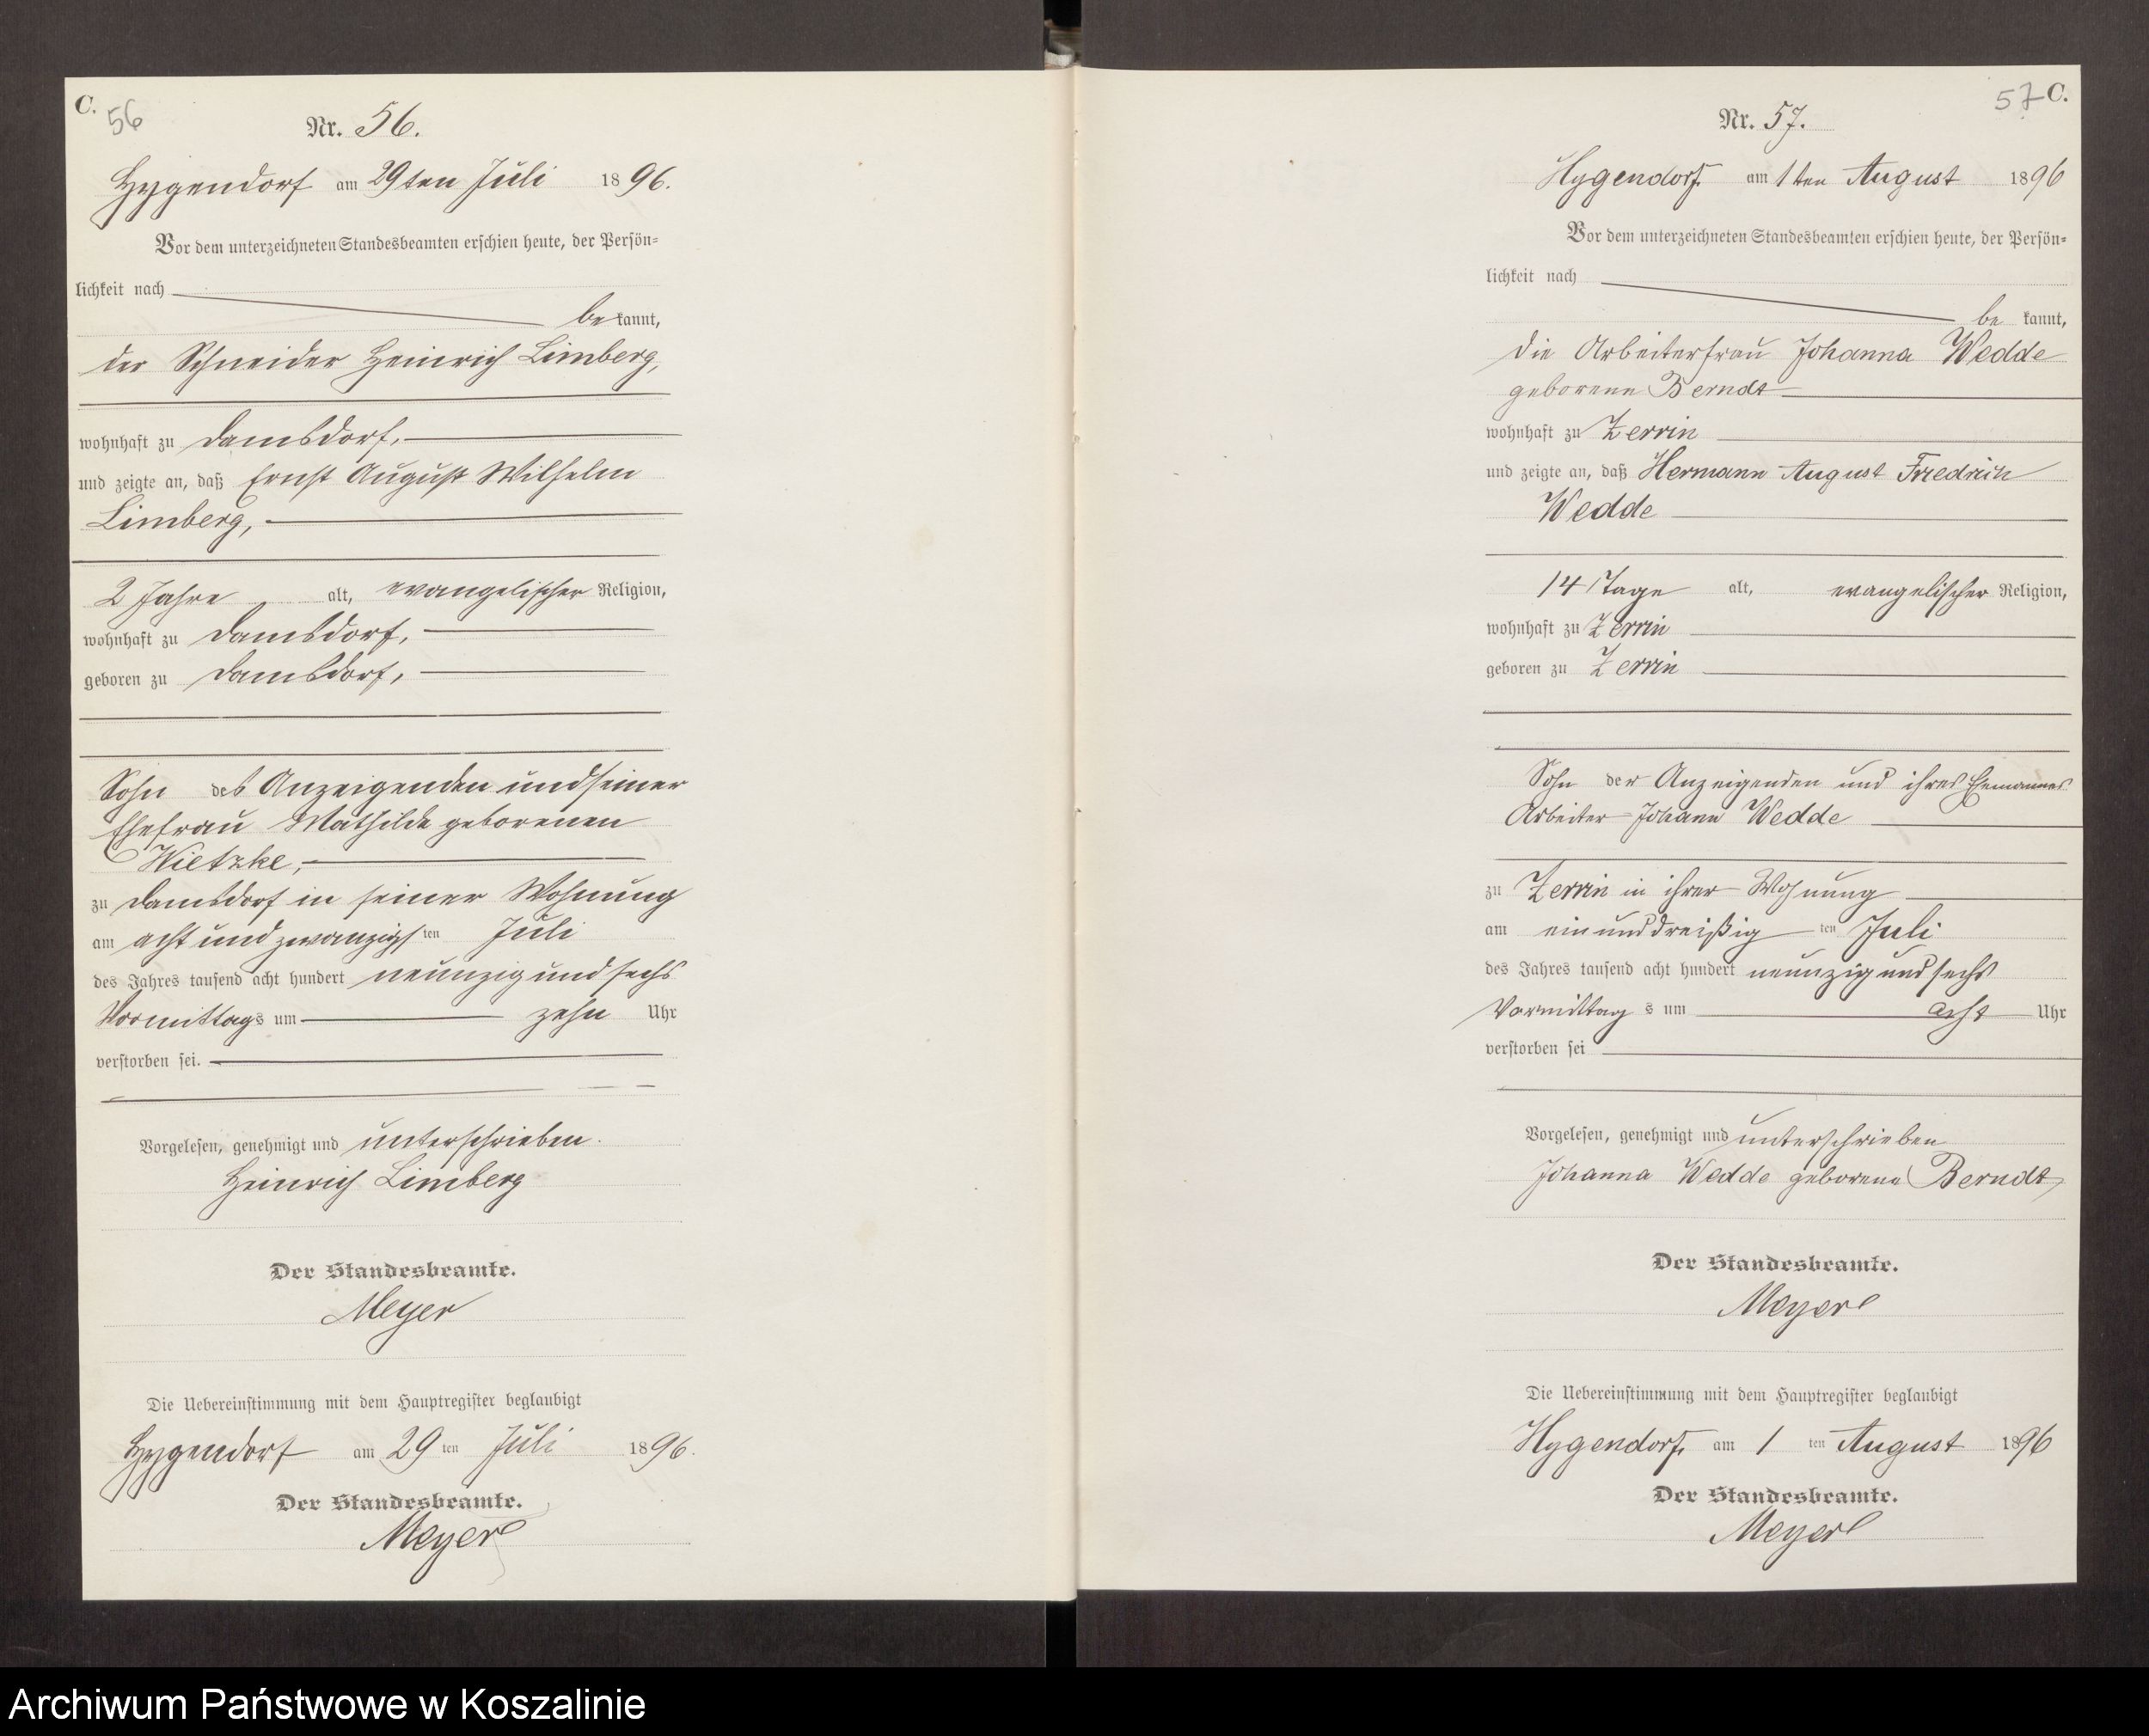 C.
56
Nr. 56.
Hygendorf am 29ten Juli 1896.
Vor dem unterzeichneten Standesbeamten erschien heute, der Persön-
lichkeit nach
bekannt,
der Schneider Heinrich Limberg,
wohnhaft zu Damsdorf,
und zeigte an, daß Ernst August Wilhelm
Limberg,
2 Jahre alt, evangelischer Religion,
wohnhaft zu Damsdorf,
geboren zu Damsdorf,
Sohn des Anzeigenden und seiner
Ehefrau Mathilde geborenen
Wietzke,
zu Damsdorf in seiner Wohnung
am acht und zwanzigsten Juli
des Jahres tausend acht hundert neunzig und sechs
Vormittags um zehn Uhr
verstorben sei.
Vorgelesen, genehmigt und unterschrieben.
Heinrich Limberg
Der Standesbeamte.
Meyer
Die Uebereinstimmung mit dem Hauptregister beglaubigt
Hygendorf am 29ten Juli 1896.
Der Standesbeamte.
Meyer
57 C.
Nr. 57.
Hygendorf am 1ten August 1896
Vor dem unterzeichneten Standesbeamten erschien heute, der Persön-
lichkeit nach
bekannt,
die Arbeiterfrau Johanna Wedde
geborene Berndt
wohnhaft zu Zerrin
und zeigte an, daß Hermann August Friedrich
Wedde
14 Tage alt, evangelischer Religion,
wohnhaft zu Zerrin
geboren zu Zerrin
Sohn der Anzeigenden und ihres Ehemannes
Arbeiter Johann Wedde
zu Zerrin in ihrer Wohnung
am ein und dreißigten Juli
des Jahres tausend acht hundert neunzig und sechs
Vormittags um acht Uhr
verstorben sei
Vorgelesen, genehmigt und unterschrieben
Johanna Wedde geborene Berndt
Der Standesbeamte.
Meyer
Die Uebereinstimmung mit dem Hauptregister beglaubigt
Hygendorf, am 1ten August 1896
Der Standesbeamte.
Meyer
Archiwum Państwowe w Koszalinie